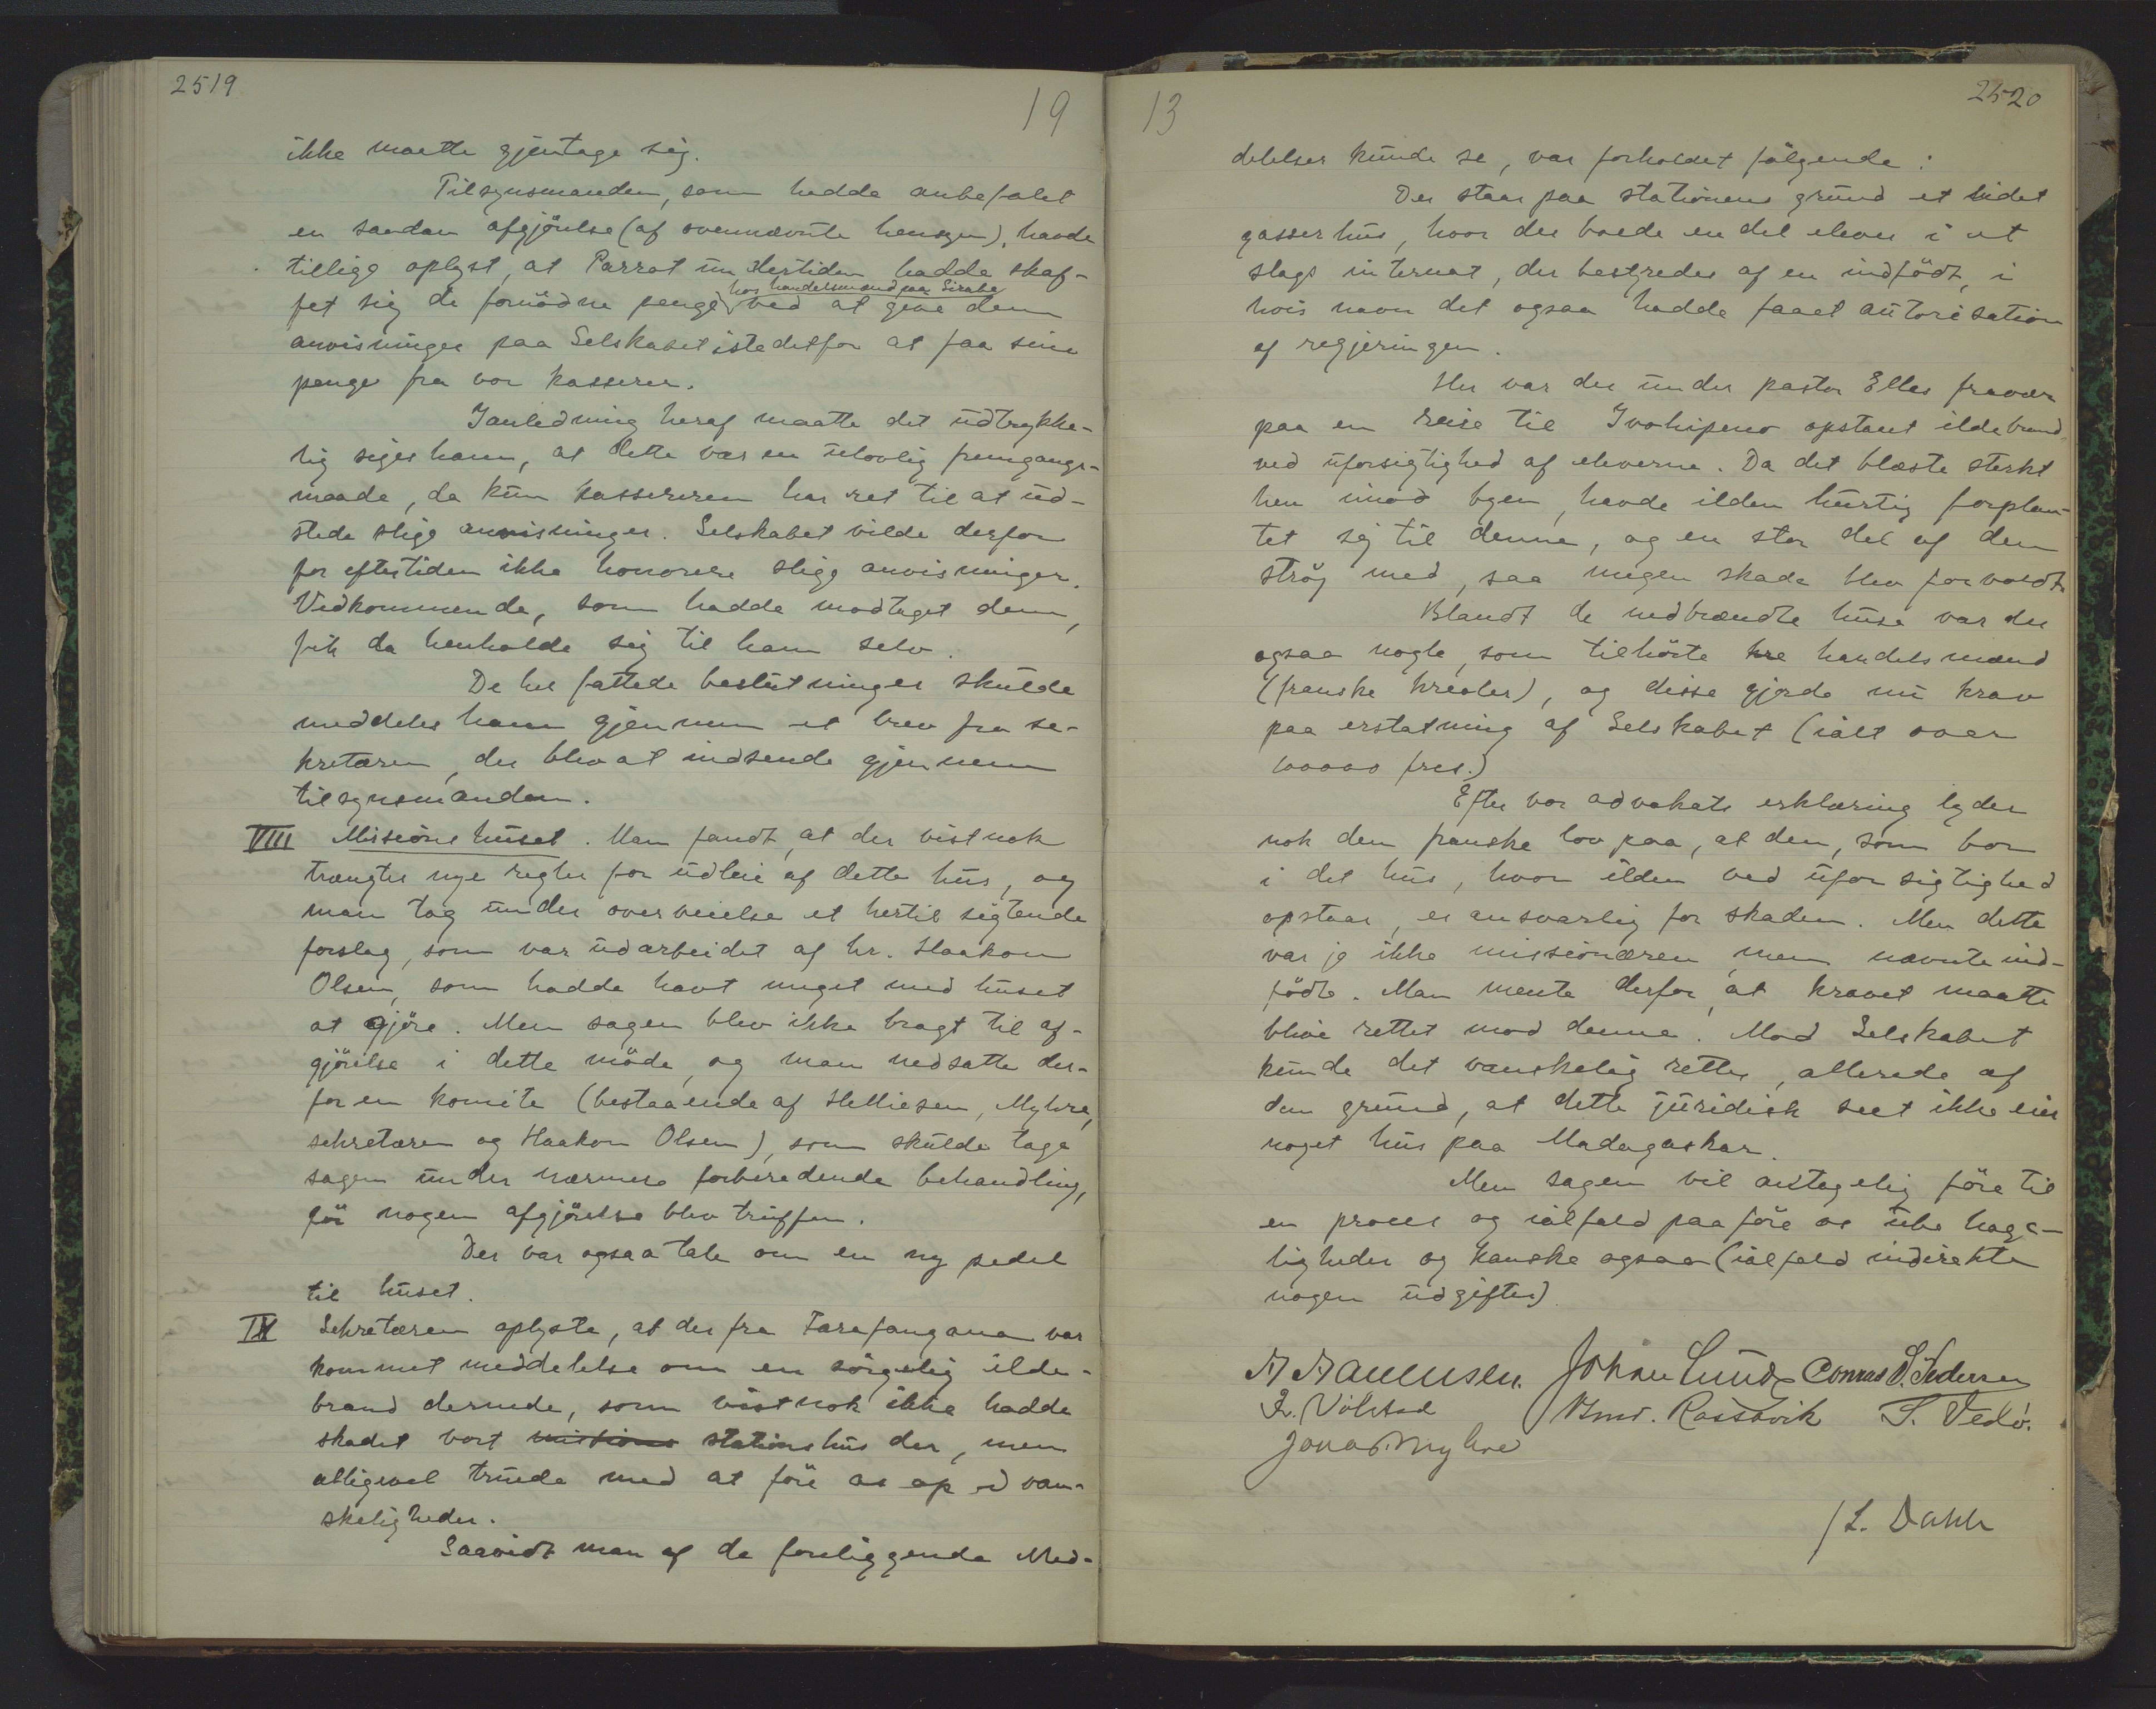 2519
19
ikke maatte gjentage sig.
Tilsynsmanden, som hadde anbefalet
en saadan afgjörelse (af ovennævnte hensyn), havde
tillige oplyst, at Parrot
hadde skaf-
hos handelsmænd paa Sirabe
fet sig de fornödne penge ved at give dem
anvisninger paa Selskabet istedetfor at faa sine
penge fra vor kasserer.
Ianledning heraf maatte det udtrykke-
lig siges ham, at dette var en ulovlig fremgangs-
maade, da kun kassereren har ret til at ud-
stede slige anvisninger. Selskabet vilde derfor
for eftertiden ikke honorere slige anvisninger.
Vedkommende, som hadde modtaget dem,
fik da henholde sig til ham selv.
De her fattede beslutninger skulde
meddeles ham gjennem et brev fra se-
kretæren, der blev at indsende gjennem
tilsynsmanden.
VIII Missionshuset. Man fandt, at der vistnok
trængtes nye regler for udleie af dette hus, og
man tog under overveielse et hertil sigtende
forslag, som var udarbeidet af hr. Haakon
Olsen, som hadde havt meget med huset
at gjöre. Men sagen blev ikke bragt til af-
gjörelse i dette möde, og man nedsatte der-
for en komite (bestaaende af Helliesen, Myhre,
sekretæren og Haakon Olsen), som skulde tage
sagen under nærmere forberedende behandling,
för nogen afgjörelse blev truffen.
Der var ogsaa tale om en ny pedel
til huset.
IX Sekretæren oplyste, at der fra Farafangana var
kommet meddelelse om en sörgelig ilde-
brand dernede, som vistnok ikke hadde
skadet vort missions stationshus der, men
alligevel truede med at före os op i van-
skeligheder.
Saavidt man af de foreliggende Med-
13
2520
delelser kunde se, var forholdet fölgende:
Der staar paa stationens grund et lidet
gasserhus, hvor der boede en del elever i et
slags internat, der bestyredes af en indfödt, i
hvis navn det ogsaa hadde faaet autorisation
af regjeringen.
Her var der under pastor Elles fravær
paa en reise til Ivohipeno opstaaet ildebrand
ved uforsigtighed af eleverne. Da det blæste sterkt
hen imod byen, havde ilden hurtig forplan-
tet sig til denne, og en stor del af den
strög med, saa megen skade blev forvoldt.
Blandt de nedbrændte huse var der
ogsaa nogle, som tilhörte handelsmænd
(franske kreoler), og disse gjorde nu krav
paa erstatning af Selskabet (ialt over
100000 frcs.)
Efter vor advokats erklæring lyder
nok den franske lov paa, at den, som bor
i det hus, hvor ilden ved uforsigtighed
opstaar, er ansvarlig for skaden. Men dette
var jo ikke missionæren, men nævnte ind-
födte. Man mente derfor, at kravet maatte
blive rettet mod denne. Mod Selskabet
kunde det vanskelig rettes, allerede af
den grund, at dette juridisk seet ikke eier
noget hus paa Madagaskar.
Men sagen vil antagelig före til
en proces og ialfald paaföre os ubehage-
ligheder og kanske ogsaa (ialfald indirekte
nogen udgifter)
Johan Lunde Conrad S. Pedersen
Rossavik S. Vedö.
Jonas Myhre
/L. Dahle